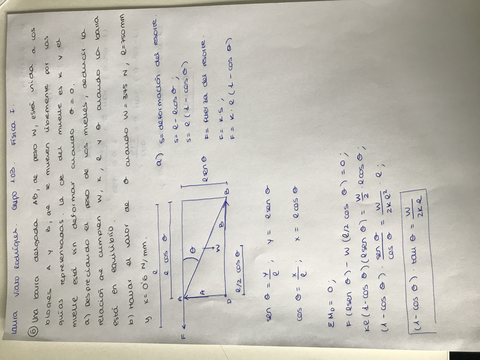 Laura Varo Rodríguez. Grupo 1.03. Física I.
⑥ Una barra delgada AB, de peso W, está unida a los
bloques A y B, que se mueven libremente por las
guías representadas. La cte del muelle es K y el
muelle está sin deformar cuando θ = 0.
a) Despreciando el peso de los muelles, deducir la
relación que cumplen W, K, l y θ cuando la barra
está en equilibrio.
b) Hallar el valor de θ cuando W = 375 N, l = 750 mm
y K = 0'6 N/mm.
a) S = deformación del resorte.
S = l - l cos θ ;
S = l (1 - cos θ)
F = fuerza del resorte.
F = K S ;
F = K · l (1 - cos θ)
l
l cos θ
l sen θ
F
A
A
θ
W
B
B
D
l/2 cos θ
sen θ = y/l ; y = l sen θ
cos θ = x/l ; x = l cos θ
Σ M_D = 0 ;
F (l sen θ) - W (l/2 cos θ) = 0 ;
K l (1 - cos θ) (l sen θ) = W/2 l cos θ ;
(1 - cos θ) · sen θ / cos θ = W / 2Kl² · l ;
(1 - cos θ) tan θ = W / 2Kl